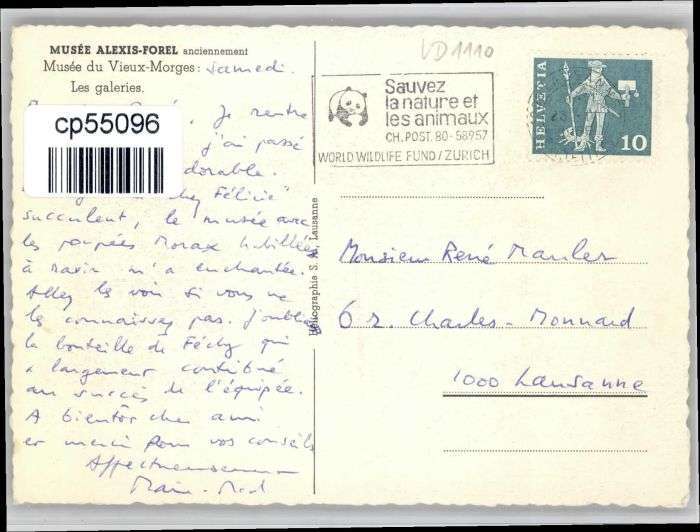 MUSÉE ALEXIS-FOREL anciennement
Musée du Vieux-Morges: samedi.
Les galeries.
Je rentre
cp55096
j'ai passé
adorable.
chez Félicie"
succulent, le musée avec
les poupées Morax habillées
à ravir m'a enchantée.
Allez les voir si vous ne
les connaissez pas. J'oubliais
la bouteille de Féchy qui
a largement contribué
au succès de l'équipée.
A bientôt cher ami
et merci pour vos conseils
Affectueusement
VD1110
Sauvez
la nature et
les animaux
CH. POST. 80-58957
WORLD WILDLIFE FUND/ZURICH
HELVETIA
10
Héliographia S. A., Lausanne
Monsieur René
6 r. Charles-Monnard
1000 Lausanne